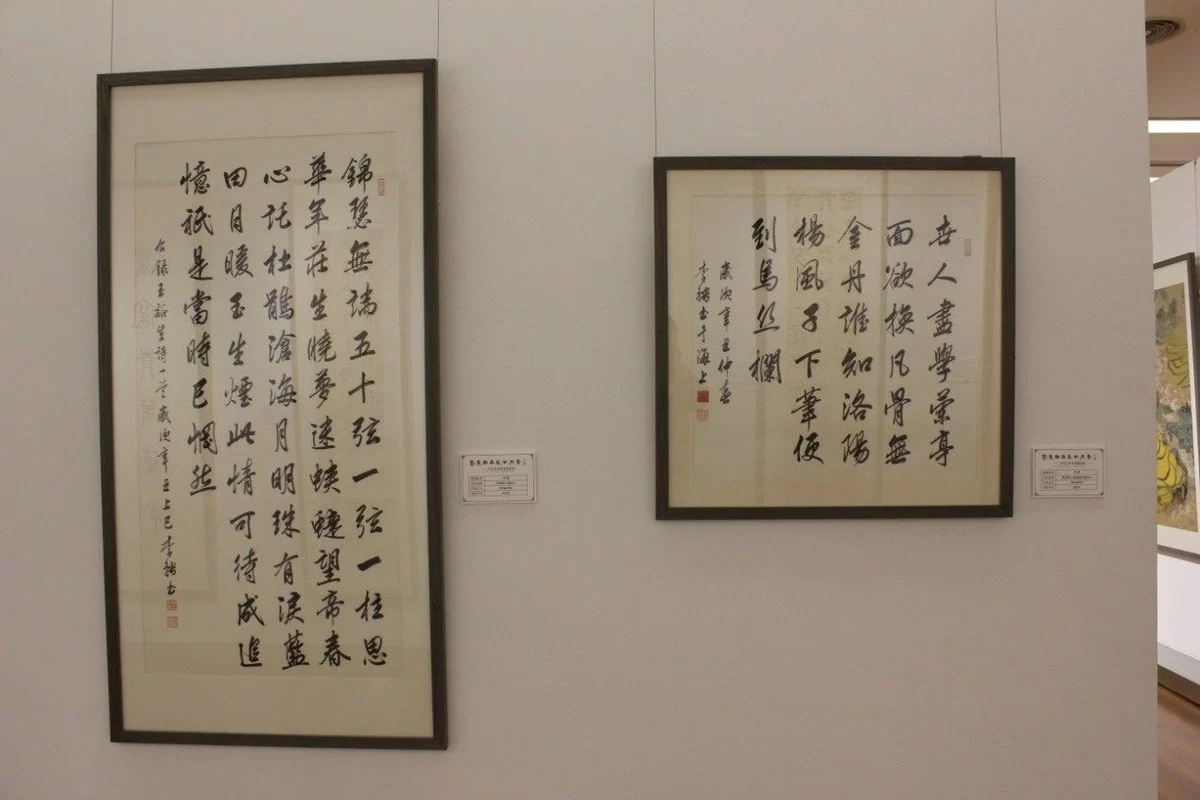 錦瑟無端五十弦一弦一柱思
華年莊生曉夢迷蝶望帝春
心託杜鵑滄海月明珠有淚藍
田日暖玉生煙此情可待成追
憶祇是當時已惘然
右錄玉谿生詩一首歲次辛丑上巳李書
世人盡學蘭亭
面欲換凡骨無
金丹誰知洛陽
楊風子下筆便
到烏絲欄
歲次辛丑仲春
李書于海上